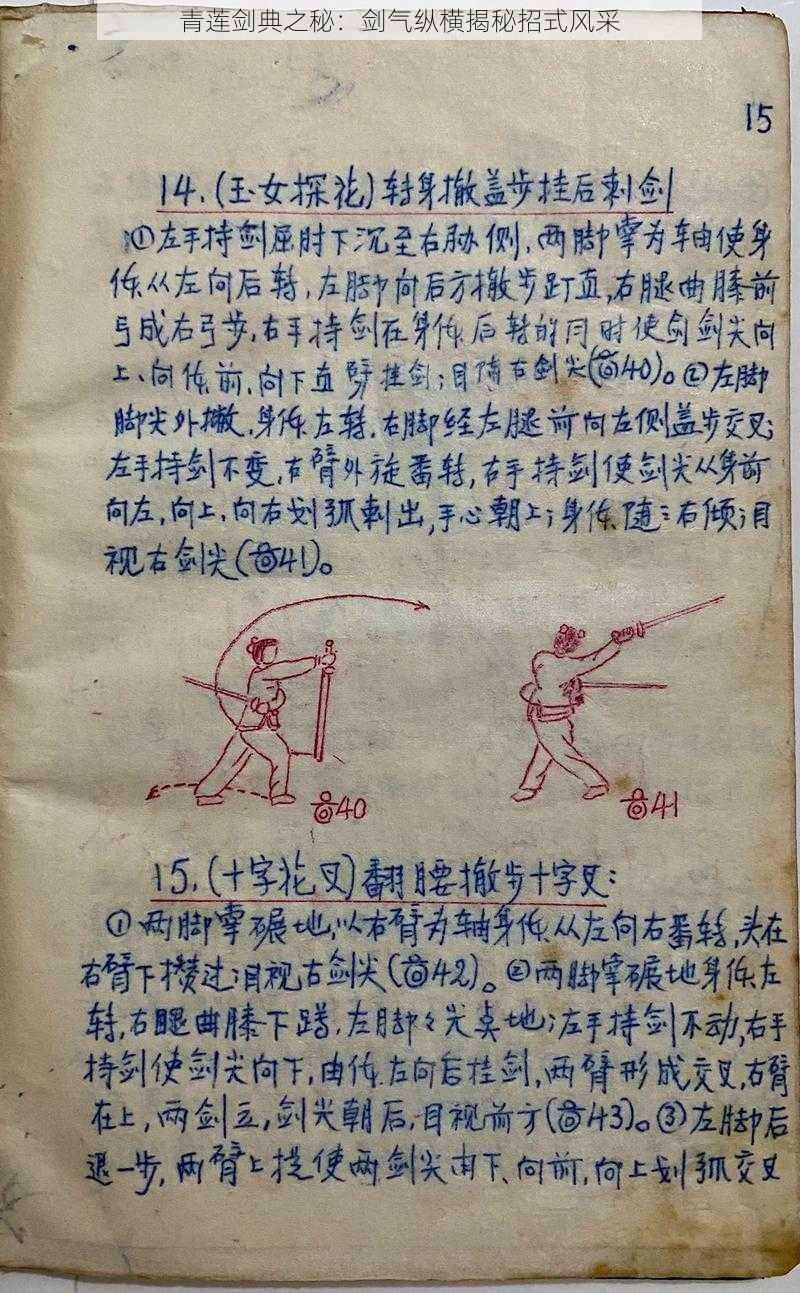 青莲剑典之秘：剑气纵横揭秘招式风采
15
14.(玉女探花)转身撤盖步挂后刺剑
①左手持剑屈肘下沉至右胁侧,两脚掌为车由使身
体从左向后转,左脚向后方撤步蹬直,右腿曲膝前
弓成右弓步,右手持剑在身体后转的同时使剑剑尖向
上、向体前、向下直臂挂剑;目随右剑尖(图40)。②左脚
脚尖外撇,身体左转,右脚经左腿前向左侧盖步交叉;
左手持剑不变,右臂外旋番转,右手持剑使剑尖从身前
向左,向上,向右划弧刺出,手心朝上;身体随之右倾;目
视右剑尖(图41)。
图40
图41
15.(十字花叉)翻腰撤步十字叉:
①两脚掌碾地,以右臂为轴身体从左向右番转,头在
右臂下攒过;目视右剑尖(图42)。②两脚掌碾地身体左
转,右腿曲膝下蹲,左脚々尖点地;左手持剑不动,右手
持剑使剑尖向下,由体左向后挂剑,两臂形成交叉,右臂
在上,两剑立,剑尖朝后,目视前方(图43)。③左脚后
退一步,两臂上提使两剑尖由下、向前,向上划弧交叉